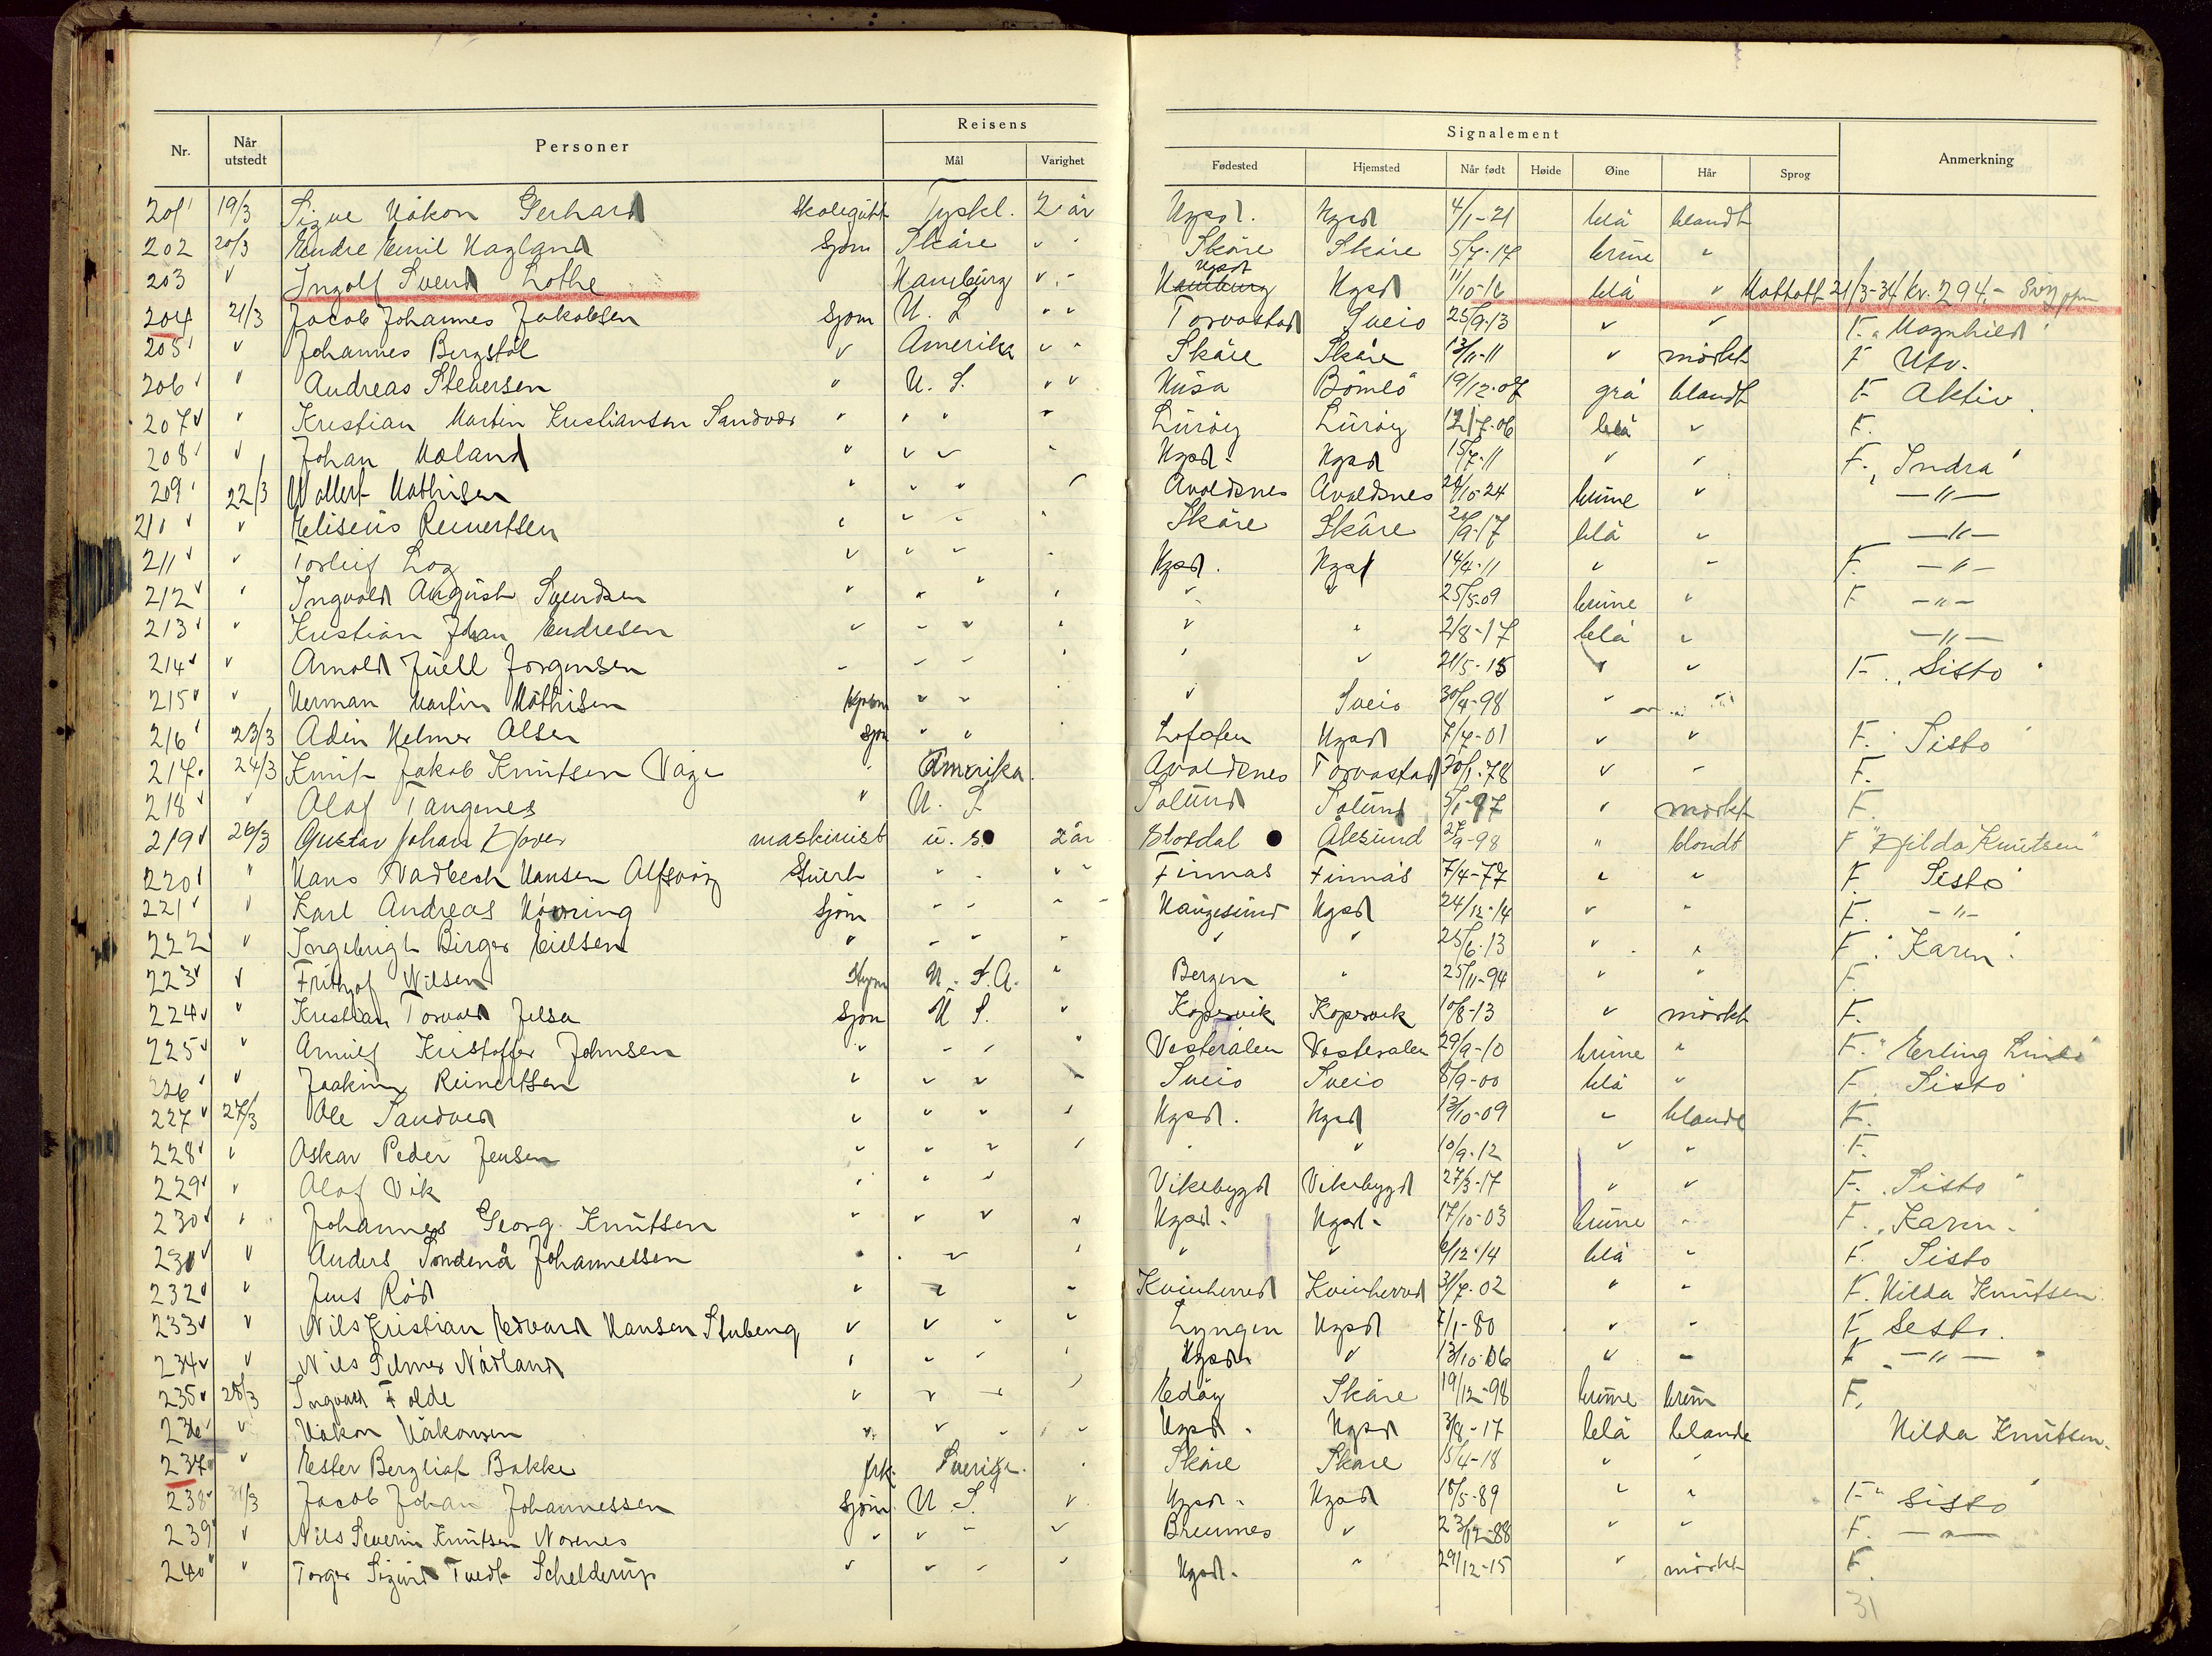 Reisens
Signalement
Nr. Når utstedt Personer Mål Varighet Fødested Hjemsted Når født Høide Øine Hår Sprog Anmerkning
201 19/3 Sigve Håkon Gerhard Skolegutt Tyskl. 2 år Hgsd. Hgsd 4/1-21 blå blandt
202 20/3 Endre Emil Hagland Sjøm Skåre " " Skåre Skåre 5/7-17 brune "
203 " Ingolf Svend Lothe Hamburg " " Hamburg Hgsd Hgsd 11/10-16 blå " Mottatt 21/3-34 kr. 294,-
204 21/3 Jacob Johannes Jakobsen Sjøm U. S " " Torvastad Sveio 25/9-13 " " F. "Magnhild"
205 " Johannes Bergstøl " Amerika " " Skåre Skåre 13/11-11 " mørkt F Utv.
206 " Andreas Steversen " U. S. " " Husa Bømlo 19/12-07 grå blandt F Aktiv
207 " Kristian Martin Kristiansen Sandvær " " " " Lurøy Lurøy 12/7-06 blå " F.
208 " Johan Høland " " " " Hgsd. Hgsd 15/7-11 " " F. "Indra"
209 22/3 Valler Mathisen " " " " Avaldsnes Avaldsnes 24/10-24 brune " —"—
210 " Eliseus Reinertsen " " " " Skåre Skåre 9-17 blå " —"—
211 " Torleif Log " " " " Hgsd. Hgsd 14/4-11 " " F. —"—
212 " Ingvald August Svendsen " " " " " " 25/5-09 brune " F —"—
213 " Kristian Johan Endresen " " " " " " 2/8-17 blå " —"—
214 " Arnold Juell Jørgensen " " " " " " 21/5-15 " " F. "Sisto"
215 " Herman Martin Mathisen " " " " Sveio 30/4-98 "
216 23/3 Adin Helmer Olsen Sjøm " " " Lofoten Hgsd 7/7-01 " " F. "Sisto"
217 24/3 Knut Jakob Knutsen Våge " Amerika. Avaldsnes Torvastad 30/1-78 " " F.
218 " Olaf Tangenes " U. S Solund Solund 5/1-97 " mørkt F.
219 26/3 Gustav Johan maskinist u. s. 2 år Ålesund 27/9-98 " blondt F "Hilda Knutsen"
220 " Hans Nadbech Hansen Alfsvåg Stuert " " " " Finnås Finnås 7/4-77 " " F. Sisto
221 " Karl Andreas Hovring Sjøm " " " " Haugesund Hgsd 24/12-14 " " F. —"—
222 " Ingebrigt Birger Eielsen " " " " " " 25/6-13 " " F. "Karen".
223 " Frithjof Nilsen Styrm U. S. A. " Bergen " 25/11-94 " " F.
224 " Kristian Torvald Jelsa Sjøm U S. " Kopervik Kopervik 10/8-13 " mørkt F.
225 " Arnulf Kristoffer Johnsen " " " " Vesterålen Vesterålen 29/9-10 brune " F. "Erling Lindø"
226 " Joakim Reinertsen " " " " Sveio Sveio 8/9-00 blå " F Sisto
227 27/3 Ole Sandved " " " " Hgsd. Hgsd 13/10-09 " blande F.
228 " Oskar Peder Jensen " " " " " " 10/9-12 " " F.
229 " Olaf Vik " " " Vikebygd Vikebygd 27/3-17 " " F. "Sisto"
230 " Johannes Georg Knutsen " " " " Hgsd. Hgsd. 17/10-03 brune " F. "Karen".
231 " Anders Søndenå Johannessen " " " " " " 6/12-14 blå " F. Sisto
232 " Jens Rød " " " Kvinherred Kvinherred 31/7-02 " " F. Hilda Knutsen.
233 " Nils Kristian Edvard Hansen Stubeng " " " " Lyngen Hgsd 7/1-80 " " F. Sisto.
234 " Nils Hilmer Nådland " " " " Hgsd. " 13/10-06 " " F. —"—
235 28/3 Ingvald Folde " " " " Edøy Skåre 19/12-98 brune brun F.
236 " Håkon Håkonsen " " " " Hgsd. Hgsd 3/8-17 blå blande Hilda Knutsen.
237 " Ester Bergliot Bakke frk. Sverige. " Skåre Skåre 15/4-18 " "
238 31/3 Jacob Johan Johannessen Sjøm. U. S. " Hgsd. Hgsd 18/5-89 " " F. "Sisto"
239 " Nils Severin Knutsen Norenes " " " " Bremnes " 23/12-88 " " F. —"—
240 " Torger Sigurd Tvedt Schelderup " " " " Hgsd. " 29/12-15 " mørkt F.
31